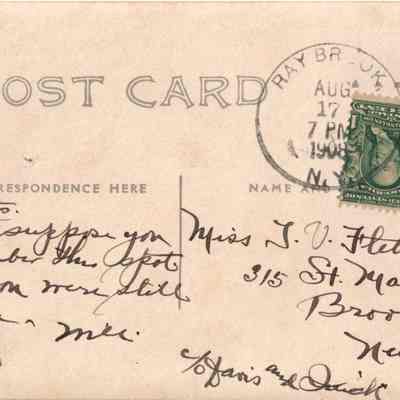 OST CARD
RAY BROOK
AUG
17
7 PM
1908
N.Y.
RESPONDENCE HERE
NAME AN
suppose you
ber this spot
on were still
Miss T. V. Flet
315 St. Ma
Broo
Ne
c/o Davis and